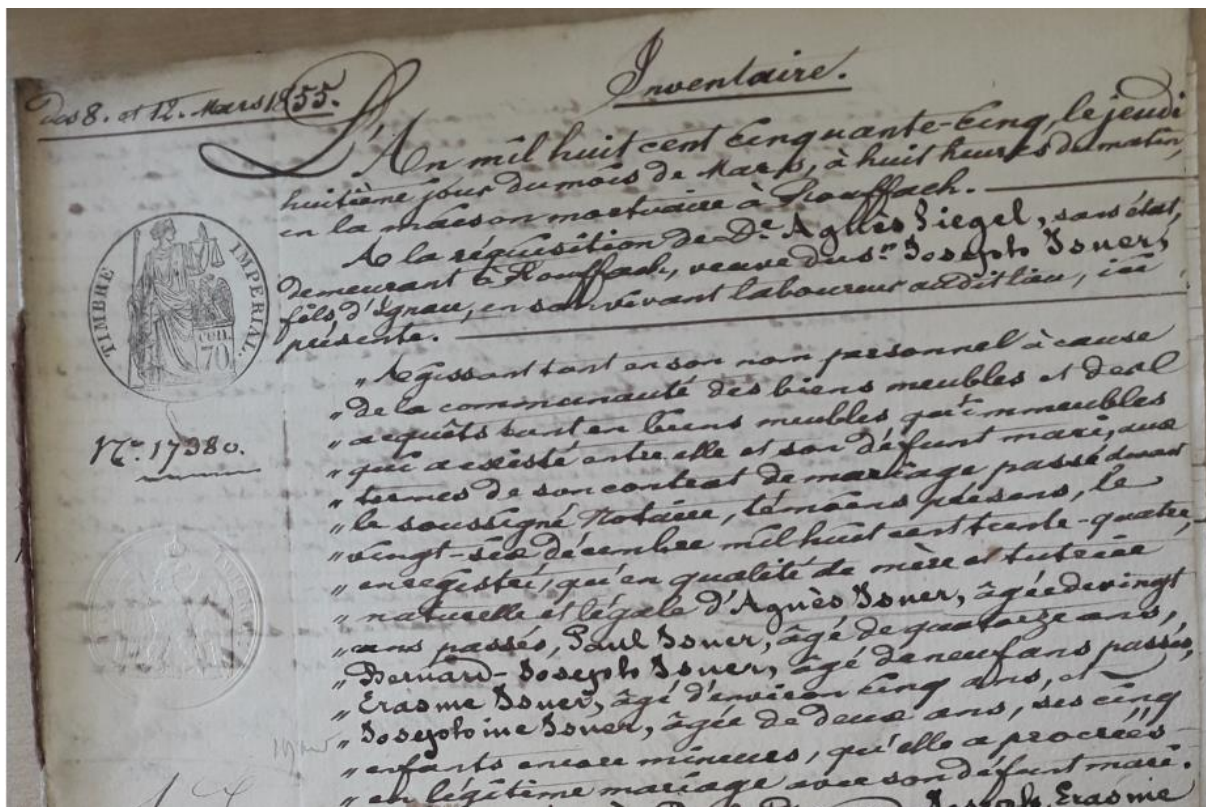 Des 8. et 12. Mars 1855.
Inventaire.
L'An mil huit cent cinquante-cinq, le jeudi
huitième jour du mois de Mars, à huit heures du matin,
en la maison mortuaire à Rouffach.
A la réquisition de De. Agnès Siegel, sans état,
demeurant à Rouffach, veuve du sr. Joseph Isner,
fils d'Ignace, en son vivant laboureur audit lieu, ici
présente.
TIMBRE IMPERIAL.
70 cen.
„ Agissant tant en son nom personnel à cause
„ de la communauté des biens meubles et des
„ acquêts tant en biens meubles qu'immeubles
„ qui a existé entre elle et son défunt mari, aux
„ termes de son contrat de mariage passé devant
No. 17380.
„ le soussigné Notaire, témoins présens, le
„ vingt-six décembre mil huit cent trente-quatre,
„ enregistré, qu'en qualité de mère et tutrice
„ naturelle et légale d'Agnès Isner, âgée de vingt
„ ans passés, Paul Isner, âgé de quatorze ans,
„ Bernard-Joseph Isner, âgé de neuf ans passés,
„ Erasme Isner, âgé d'environ cinq ans, et
„ Josephine Isner, âgée de deux ans, ses cinq
„ enfants encore mineurs, qu'elle a procréés
„ en légitime mariage avec son défunt mari.
Joseph Erasme